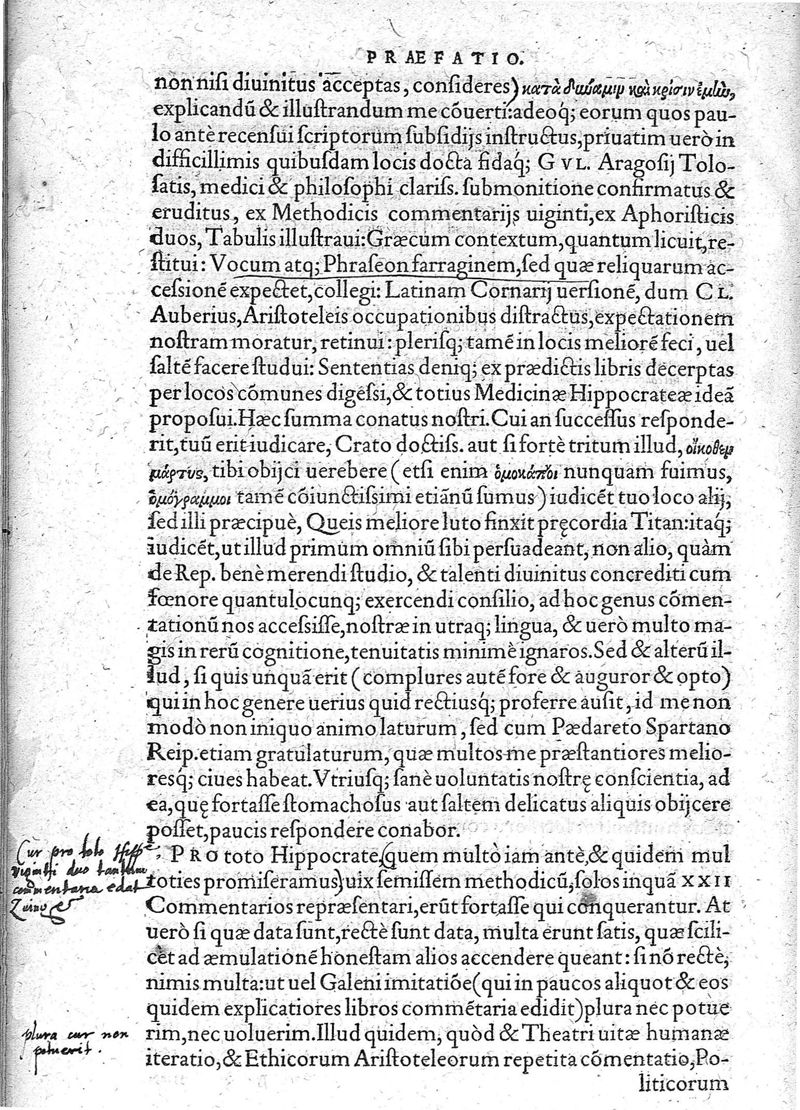 PRAEFATIO.
non nisi diuinitus acceptas, consideres) κατὰ δύναμιν καὶ κρίσιν ἐμὴν,
explicandū & illustrandum me cōuerti: adeoq; eorum quos pau-
lo antè recensui scriptorum subsidijs instructus, priuatim uerò in
difficillimis quibusdam locis docta fidaq́; GVL. Aragosij Tolo-
satis, medici & philosophi clariss. submonitione confirmatus &
eruditus, ex Methodicis commentarijs uiginti, ex Aphoristicis
duos, Tabulis illustraui: Græcum contextum, quantum licuit, re-
stitui: Vocum atq; Phraseon farraginem, sed quæ reliquarum ac-
cessionē expectet, collegi: Latinam Cornarij uersionē, dum CL.
Auberius, Aristoteleis occupationibus distractus, expectationem
nostram moratur, retinui: plerisq; tamē in locis meliorē feci, uel
saltē facere studui: Sententias deniq; ex prædictis libris decerptas
per locos cōmunes digessi, & totius Medicinæ Hippocrateæ ideā
proposui. Hæc summa conatus nostri. Cui an successus responde-
rit, tuū erit iudicare, Crato doctiss. aut si fortè tritum illud, οἴκοθεν
μάρτυς, tibi obijci uerebere (etsi enim ὁμοκάποι nunquam fuimus,
ὁμόγραμμοι tamē cōiunctissimi etiānū sumus) iudicēt tuo loco alij,
sed illi præcipuè, Queis meliore luto finxit pręcordia Titan: itaq;
iudicēt, ut illud primum omniū sibi persuadeant, non alio, quàm
de Rep. benè merendi studio, & talenti diuinitus concrediti cum
fœnore quantulocunq; exercendi consilio, ad hoc genus cōmen-
tationū nos accessisse, nostræ in utraq; lingua, & uerò multo ma-
gis in rerū cognitione, tenuitatis minimè ignaros. Sed & alterū il-
lud, si quis unquā erit (complures autē fore & auguror & opto)
qui in hoc genere uerius quid rectiusq́; proferre ausit, id me non
modò non iniquo animo laturum, sed cum Pædareto Spartano
Reip. etiam gratulaturum, quæ multos me præstantiores melio-
resq; ciues habeat. Vtriusq; sanè uoluntatis nostrę conscientia, ad
ea, quę fortasse stomachosus aut saltem delicatus aliquis obijcere
posset, paucis respondere conabor.
Cur pro toto Hipp
viginti duo tantum
commentaria edat
Zuing
PRO toto Hippocrate, (quem multò iam antè, & quidem mul
toties promiseramus) uix semissem methodicū, solos inquā XXII
Commentarios repræsentari, erūt fortasse qui conquerantur. At
uerò si quæ data sunt, rectè sunt data, multa erunt satis, quæ scili-
cet ad æmulationē honestam alios accendere queant: si nō rectè,
nimis multa: ut uel Galeni imitatiōe (qui in paucos aliquot & eos
quidem explicatiores libros commētaria edidit) plura nec potue
plura cur non
potuerit.
rim, nec uoluerim. Illud quidem, quòd & Theatri uitæ humanæ
iteratio, & Ethicorum Aristoteleorum repetita cōmentatio, Po-
liticorum